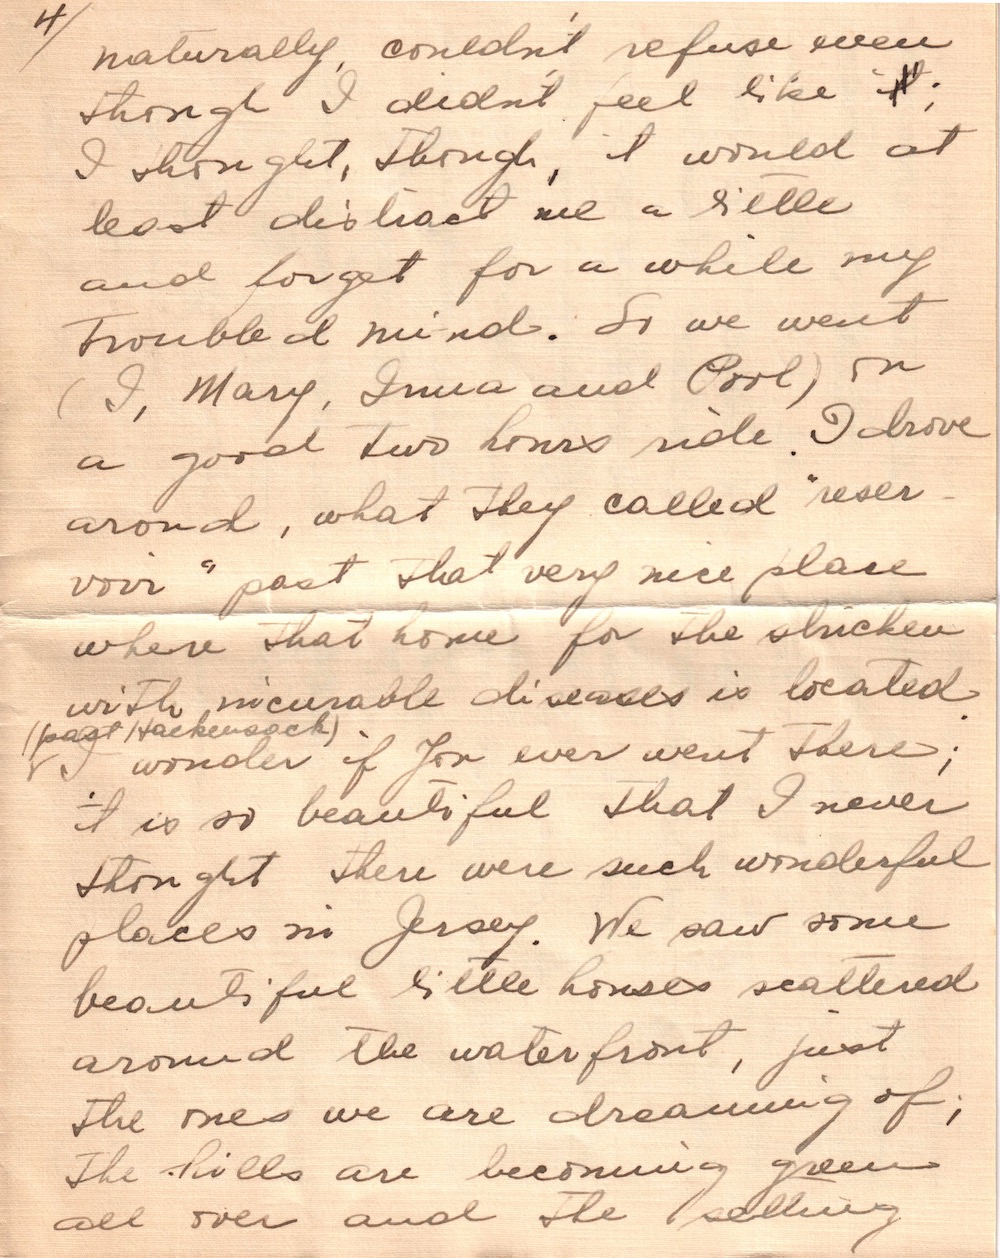 4/
naturally, couldn't refuse even
though I didn't feel like it;
I thought, though, it would at
least distract me a little
and forget for a while my
troubled mind. So we went
(I, Mary, Irma and Pool) on
a good two hours ride. I drove
around, what they called "reser-
voir" past that very nice place
where that home for the stricken
with incurable diseases is located.
(past Hackensack)
I wonder if You ever went there;
it is so beautiful that I never
thought there were such wonderful
places in Jersey. We saw some
beautiful little houses scattered
around the waterfront, just
the ones we are dreaming of;
the hills are becoming green
all over and the setting